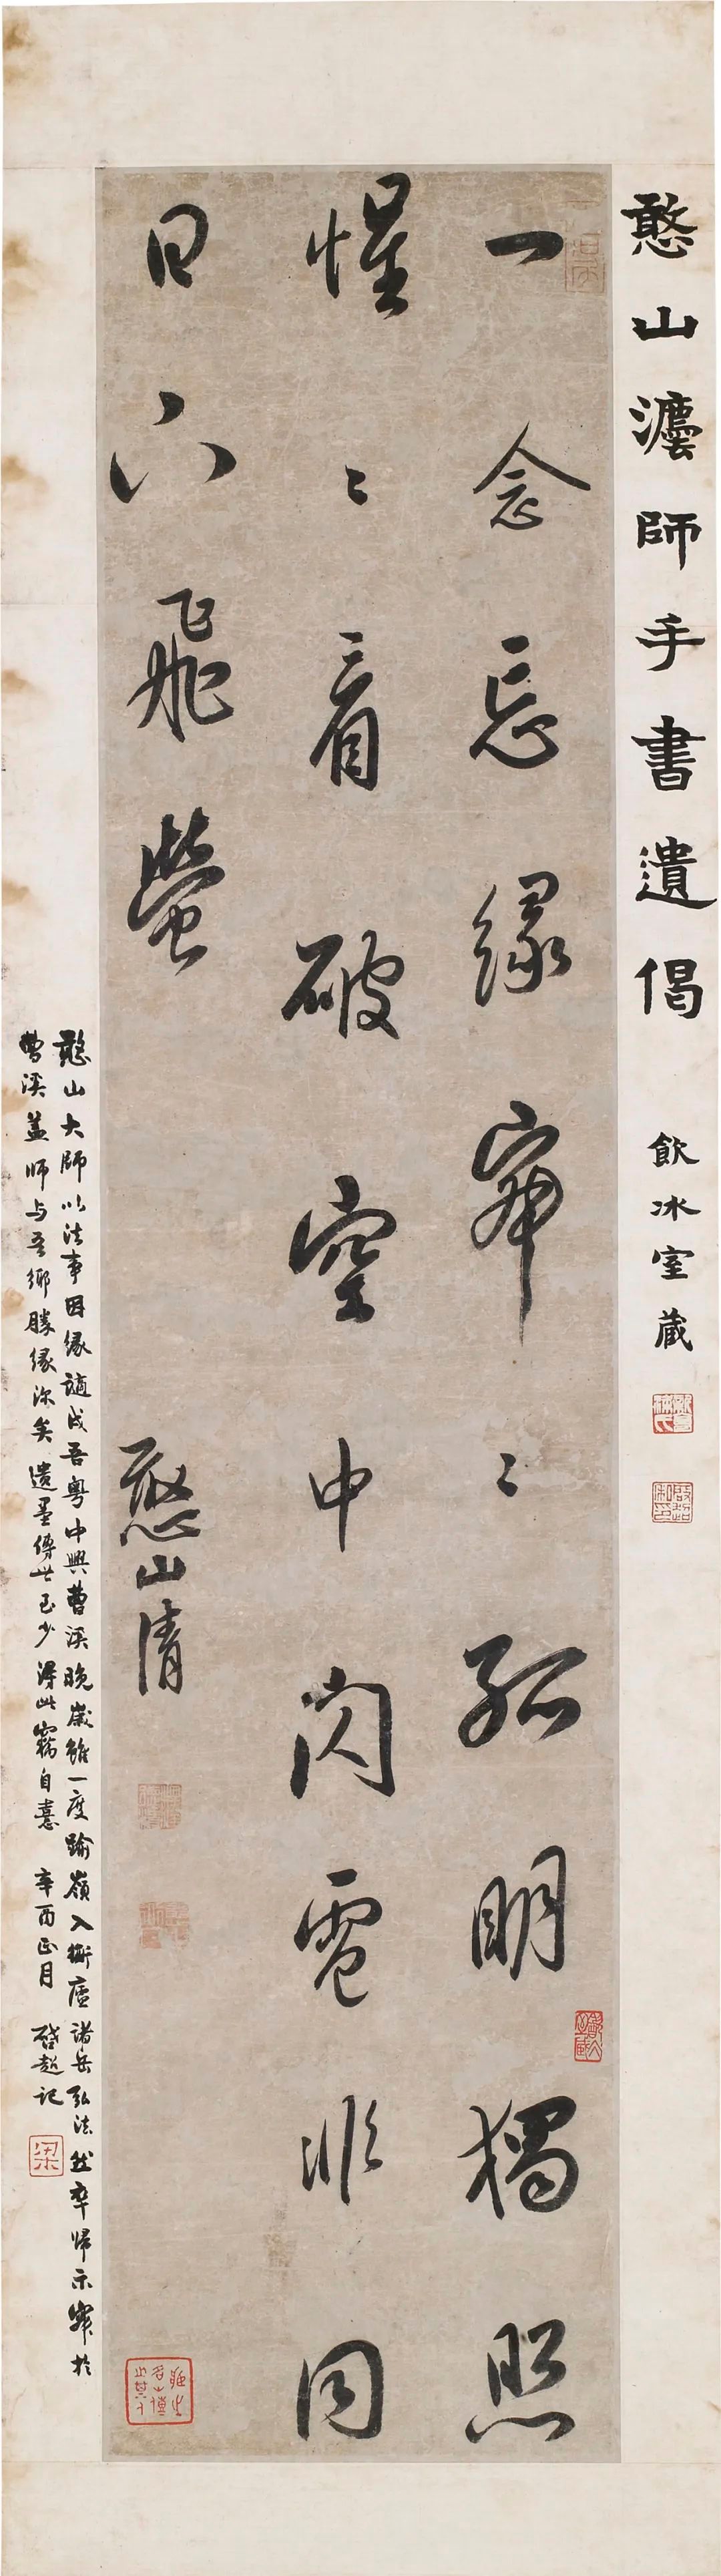 憨山灋師手書遺偈 飲冰室藏
一念忘緣寂〻孤明獨照
惺〻看破空中閃電非同
日下飛螢
憨山清
憨山大師以法事因緣謫戍吾粵中興曹溪晚歲雖一度踰嶺入衡廬諸岳弘法然卒歸示寂於
曹溪蓋師与吾鄉勝緣深矣遺墨傳世至少得此竊自憙 辛酉正月 啓超記
梁